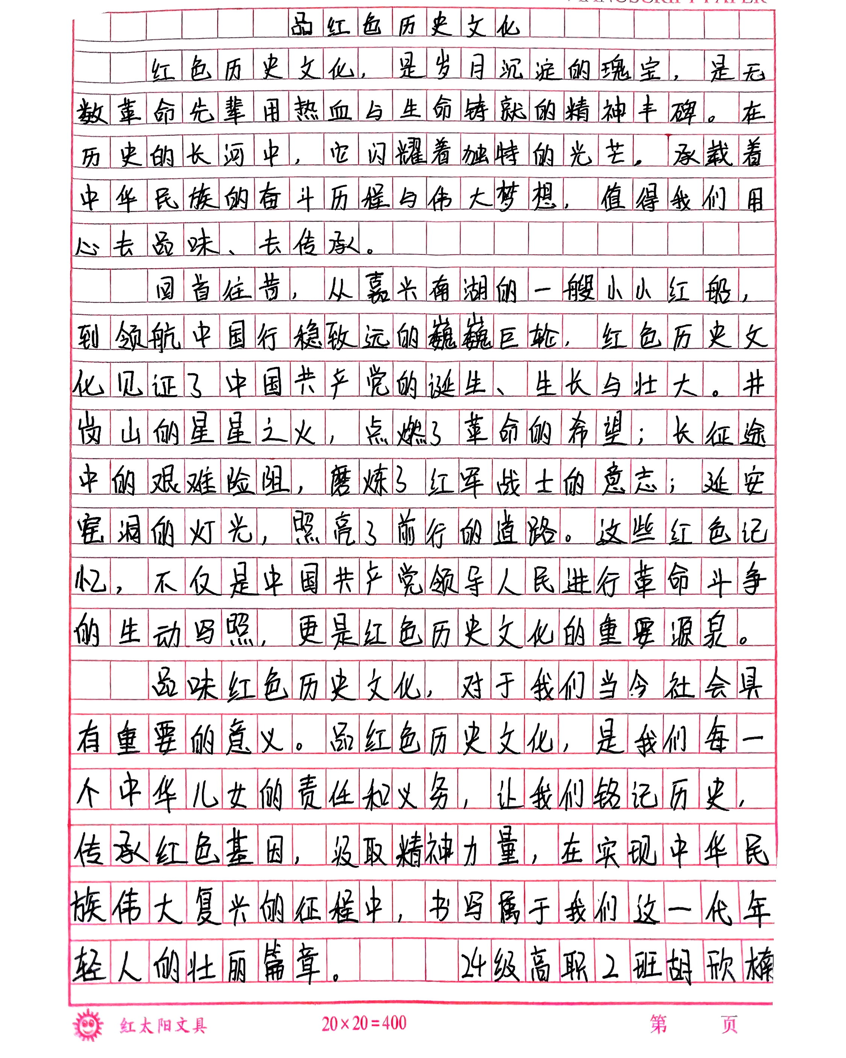 MANUSCRIPT PAPER
品红色历史文化
红色历史文化，是岁月沉淀的瑰宝，是无
数革命先辈用热血与生命铸就的精神丰碑。在
历史的长河中，它闪耀着独特的光芒。承载着
中华民族的奋斗历程与伟大梦想，值得我们用
心去品味、去传承。
回首往昔，从嘉兴南湖的一艘小小红船，
到领航中国行稳致远的巍巍巨轮，红色历史文
化见证了中国共产党的诞生、生长与壮大。井
岗山的星星之火，点燃了革命的希望；长征途
中的艰难险阻，磨炼了红军战士的意志；延安
窑洞的灯光，照亮了前行的道路。这些红色记
忆，不仅是中国共产党领导人民进行革命斗争
的生动写照，更是红色历史文化的重要源泉。
品味红色历史文化，对于我们当今社会具
有重要的意义。品红色历史文化，是我们每一
个中华儿女的责任和义务，让我们铭记历史，
传承红色基因，汲取精神力量，在实现中华民
族伟大复兴的征程中，书写属于我们这一代年
轻人的壮丽篇章。 24级高职2班胡欣楠
红太阳文具 20×20=400 第 页